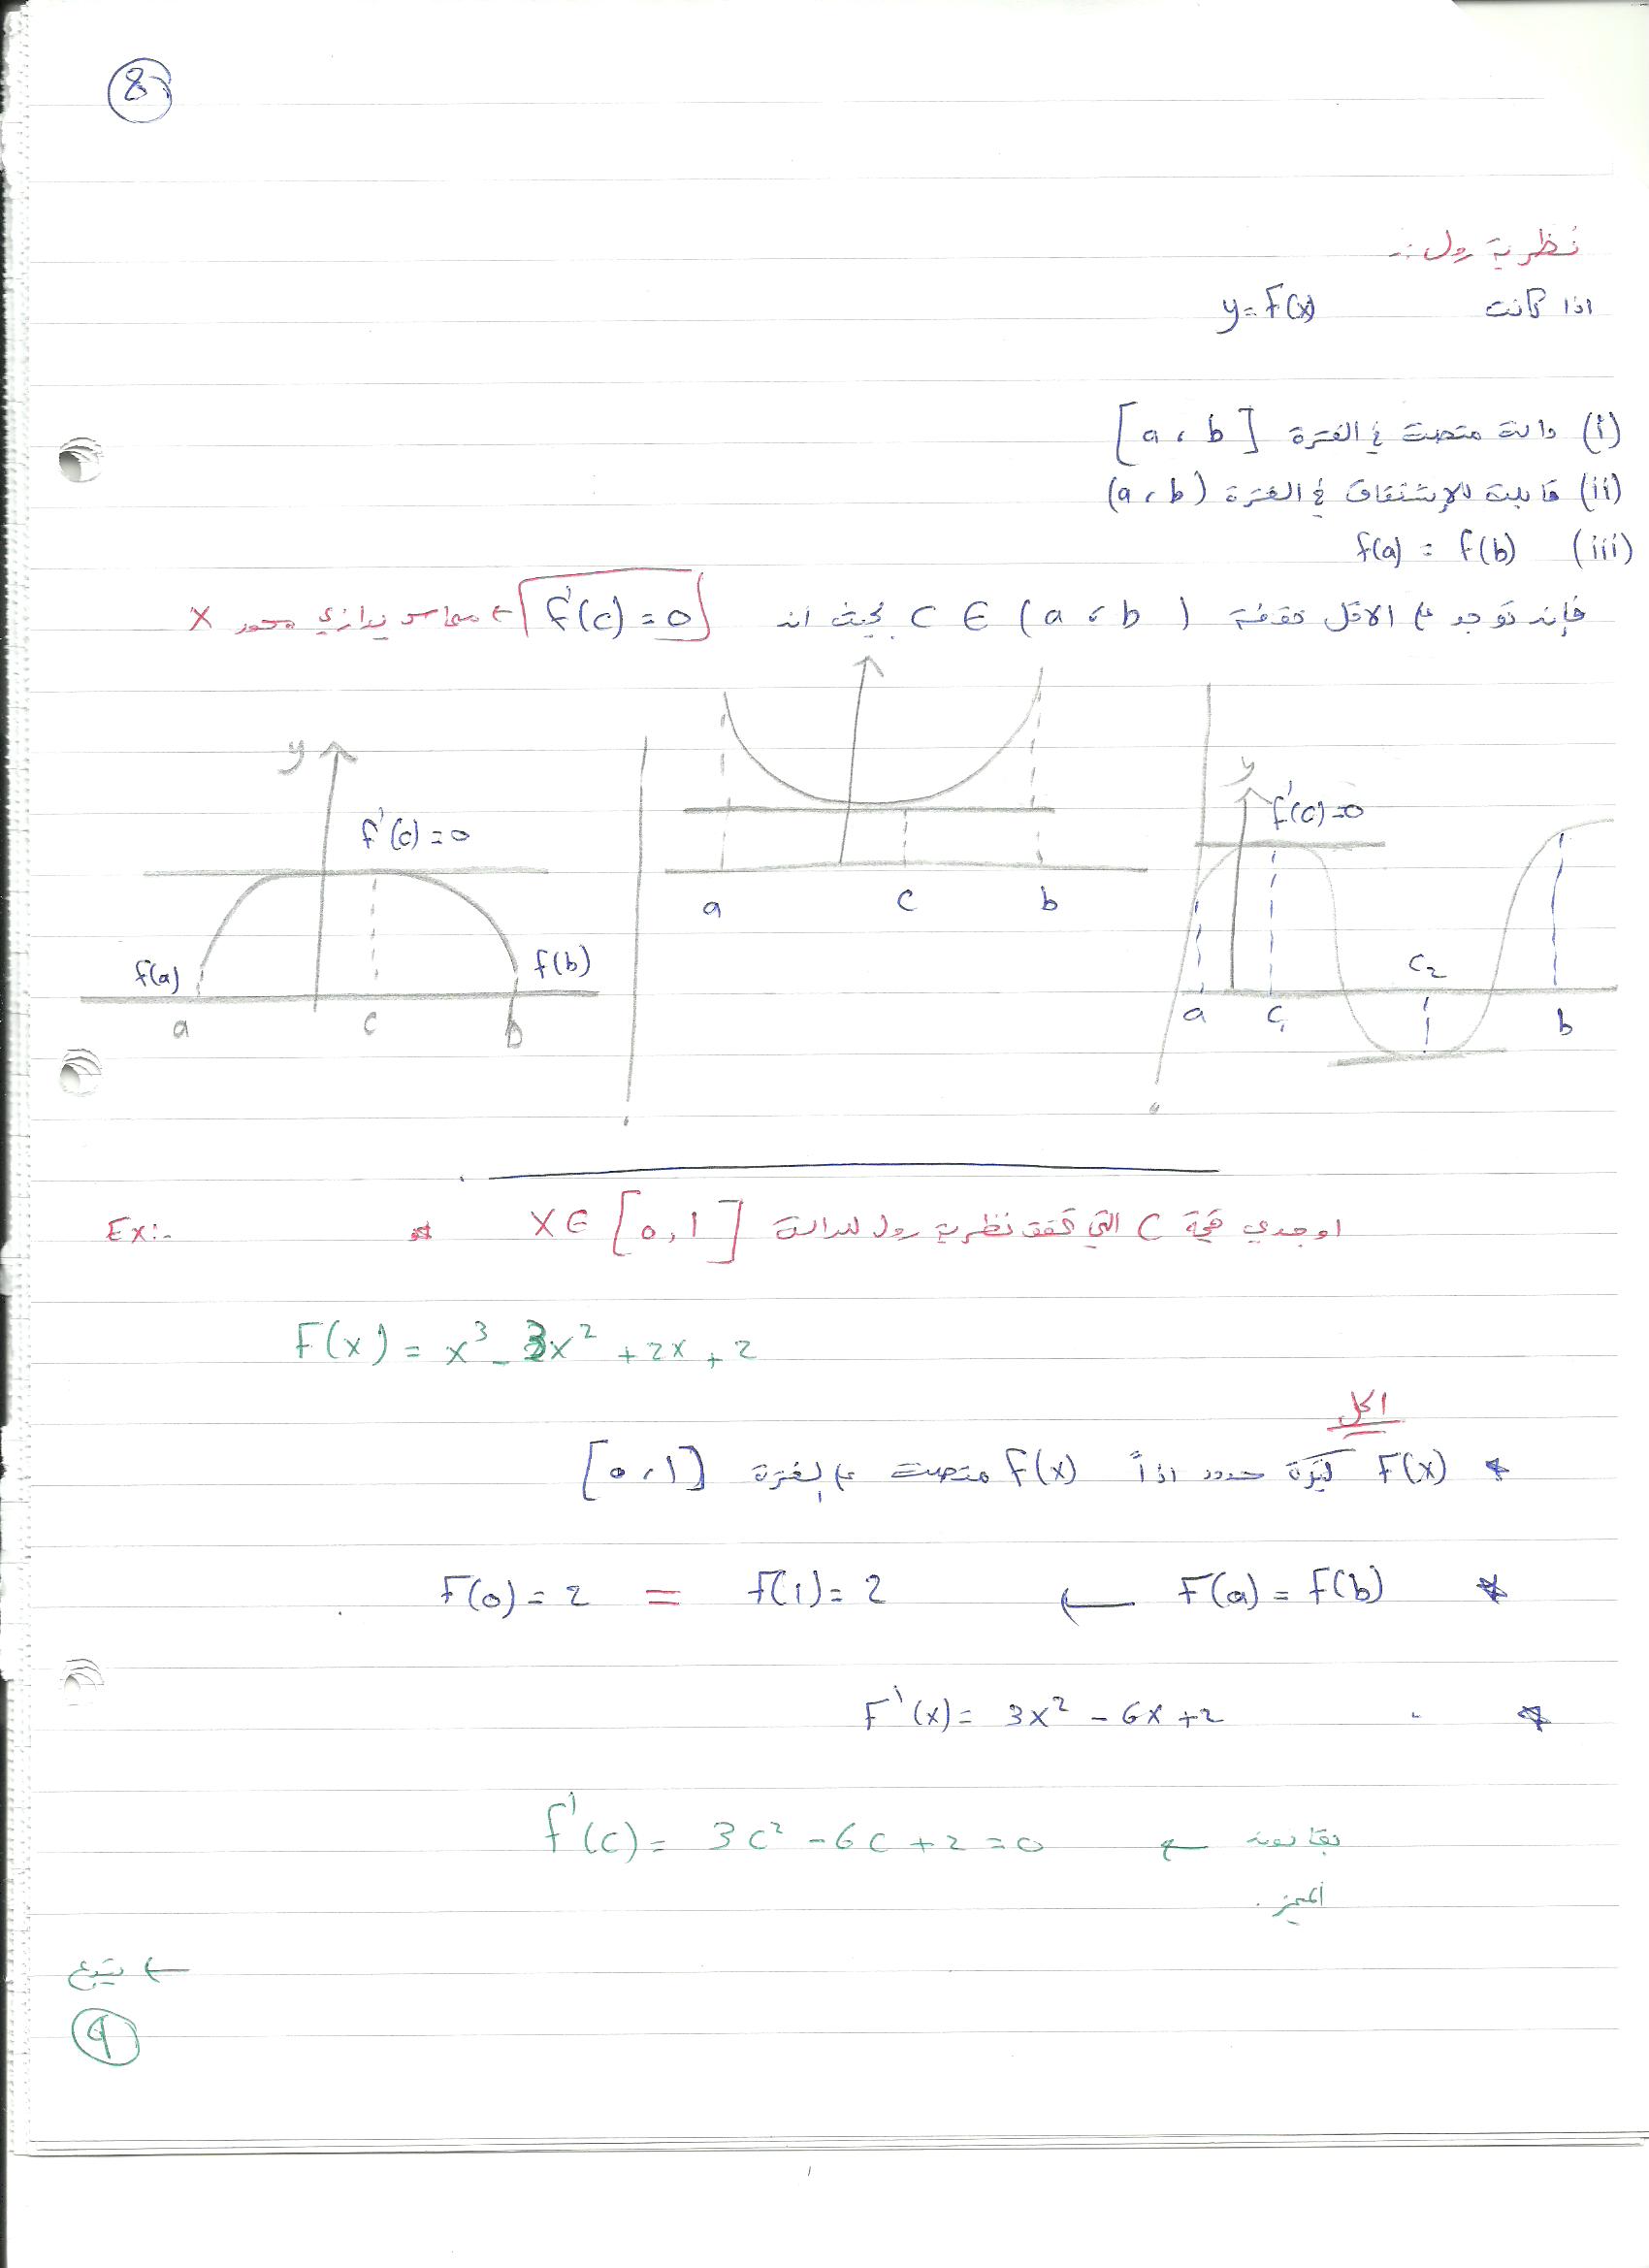 8
نظرية رول :-
اذا كانت y = F(x)
(i) دالة متصلة في الفترة [a ، b]
(ii) قابلة للإشتقاق في الفترة (a ، b)
(iii) f(a) = f(b)
فإنه توجد على الاقل c ∈ (a ، b) بحيث أن f'(c) = 0 ← مماس يوازي محور x
y
f'(c) = 0
f(a) f(b)
a c b
a c b
y
f'(c) = 0
c₂
a c₁ b
Ex:- اوجدي قيمة c التي تحقق نظرية رول للدالة x ∈ [0, 1]
F(x) = x³ - 3x² + 2x + 2
الحل
* F(x) كثيرة حدود اذاً f(x) متصلة على الفترة [0 ، 1]
* F(a) = f(b) ← f(1) = 2 = F(0) = 2
* F'(x) = 3x² - 6x + 2
f'(c) = 3c² - 6c + 2 = 0 ← بقانون
المميز .
← يتبع
9